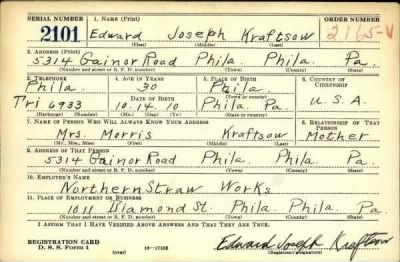 SERIAL NUMBER 1. NAME (Print) ORDER NUMBER
2101 Edward Joseph Kraftsow 2165-V
(First) (Middle) (Last)
2. ADDRESS (Print)
5314 Gainor Road Phila. Phila. Pa.
(Number and street or R. F. D. number) (Town) (County) (State)
3. TELEPHONE 4. AGE IN YEARS 5. PLACE OF BIRTH 6. COUNTRY OF CITIZENSHIP
Phila. 30 Phila.
DATE OF BIRTH (Town or county)
Tri 6933 10.14.10 Phila. Pa. U.S.A.
(Exchange) (Number) (Mo.) (Day) (Yr.) (State or country)
7. NAME OF PERSON WHO WILL ALWAYS KNOW YOUR ADDRESS 8. RELATIONSHIP OF THAT PERSON
Mrs. Morris Kraftsow Mother
(Mr., Mrs., Miss) (First) (Middle) (Last)
9. ADDRESS OF THAT PERSON
5314 Gainor Road Phila. Phila. Pa.
(Number and street or R. F. D. number) (Town) (County) (State)
10. EMPLOYER'S NAME
Northern Straw Works
11. PLACE OF EMPLOYMENT OR BUSINESS
1011 Diamond St. Phila. Phila Pa.
(Number and street or R. F. D. number) (Town) (County) (State)
I AFFIRM THAT I HAVE VERIFIED ABOVE ANSWERS AND THAT THEY ARE TRUE.
REGISTRATION CARD Edward Joseph Kraftsow
D. S. S. Form 1 (over) 16-17105 (Registrant's signature)